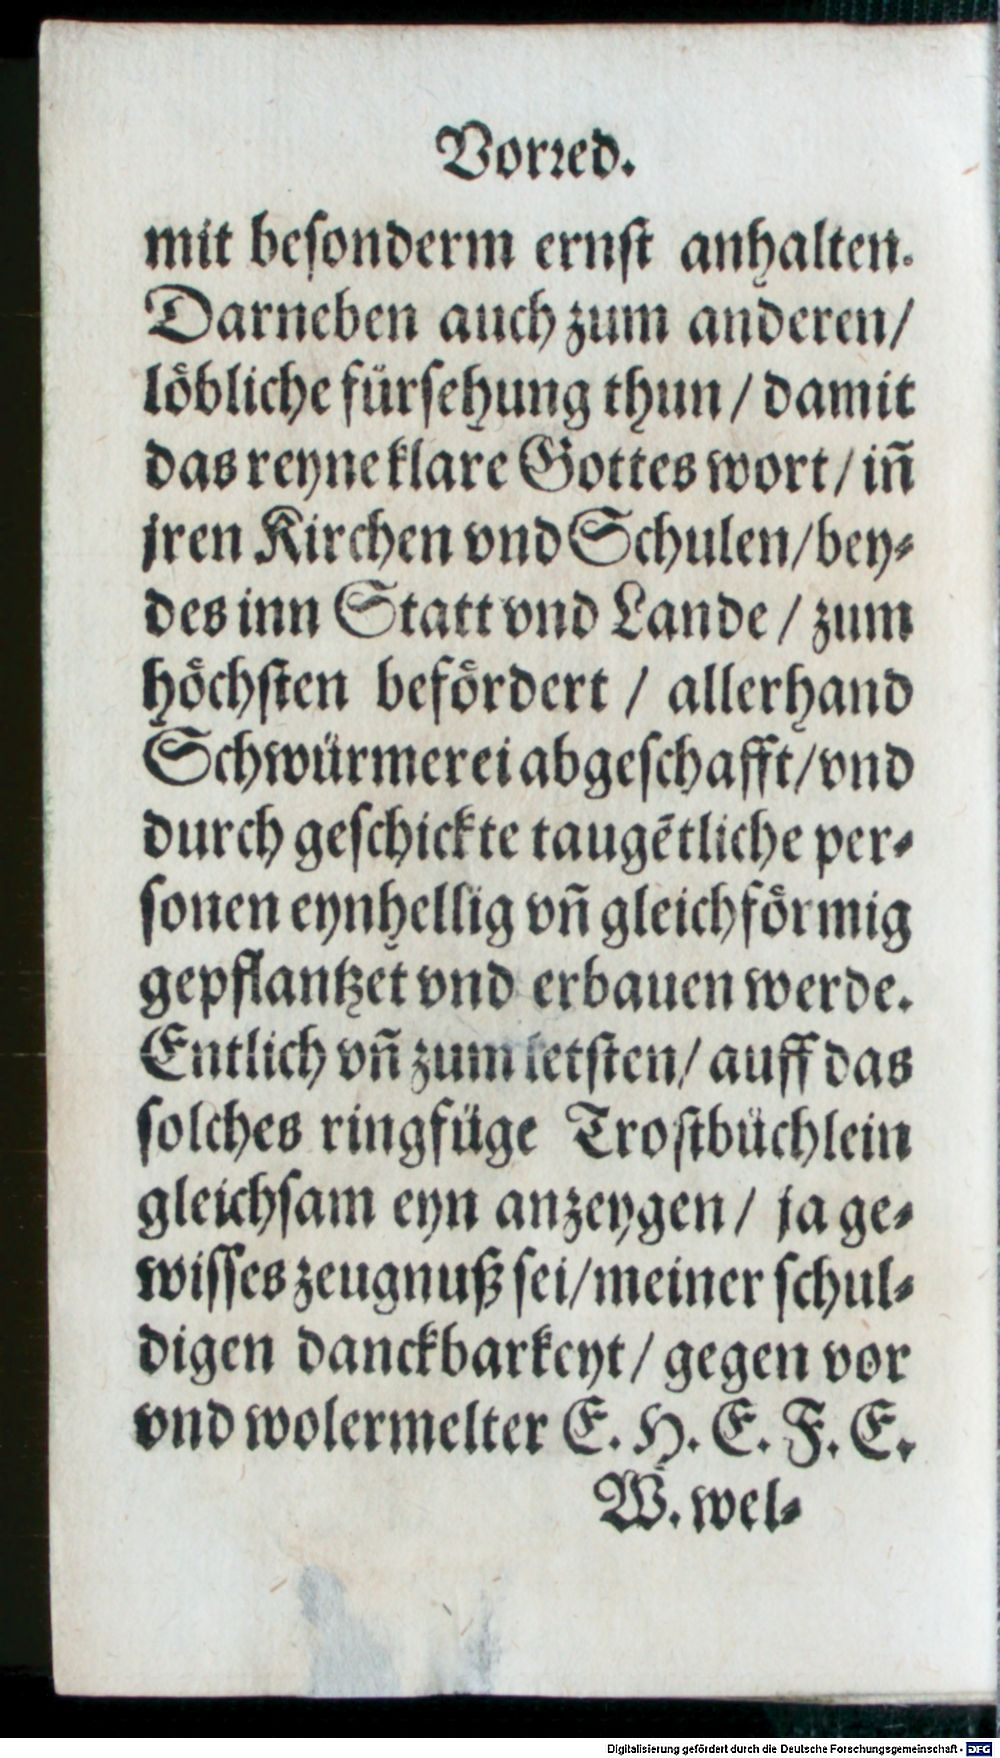 Vorꝛed.
mit beſonderm ernſt anhalten.
Darneben auch zum anderen/
loͤbliche fürſehung thun / damit
das reyne klare Gottes wort / iñ
jren Kirchen vnd Schulen/bey⸗
des inn Statt vnd Lande / zum
hoͤchſten befoͤrdert / allerhand
Schwürmerei abgeſchafft/vnd
durch geſchickte taugẽtliche per⸗
ſonen eynhellig vñ gleichfoͤrmig
gepflantzet vnd erbauen werde.
Entlich vñ zum letſten/ auff das
ſolches ringfüge Troſtbüchlein
gleichſam eyn anzeygen / ja ge⸗
wiſſes zeugnuß ſei/meiner ſchul⸗
digen danckbarkeyt / gegen vor
vnd wolermelter E. H. E. F. E.
W. wel⸗
Digitalisierung gefördert durch die Deutsche Forschungsgemeinschaft - DFG